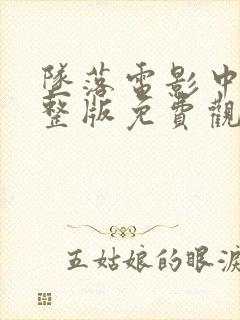 墜落電影中
整版免費觀
五姑娘的眼淚